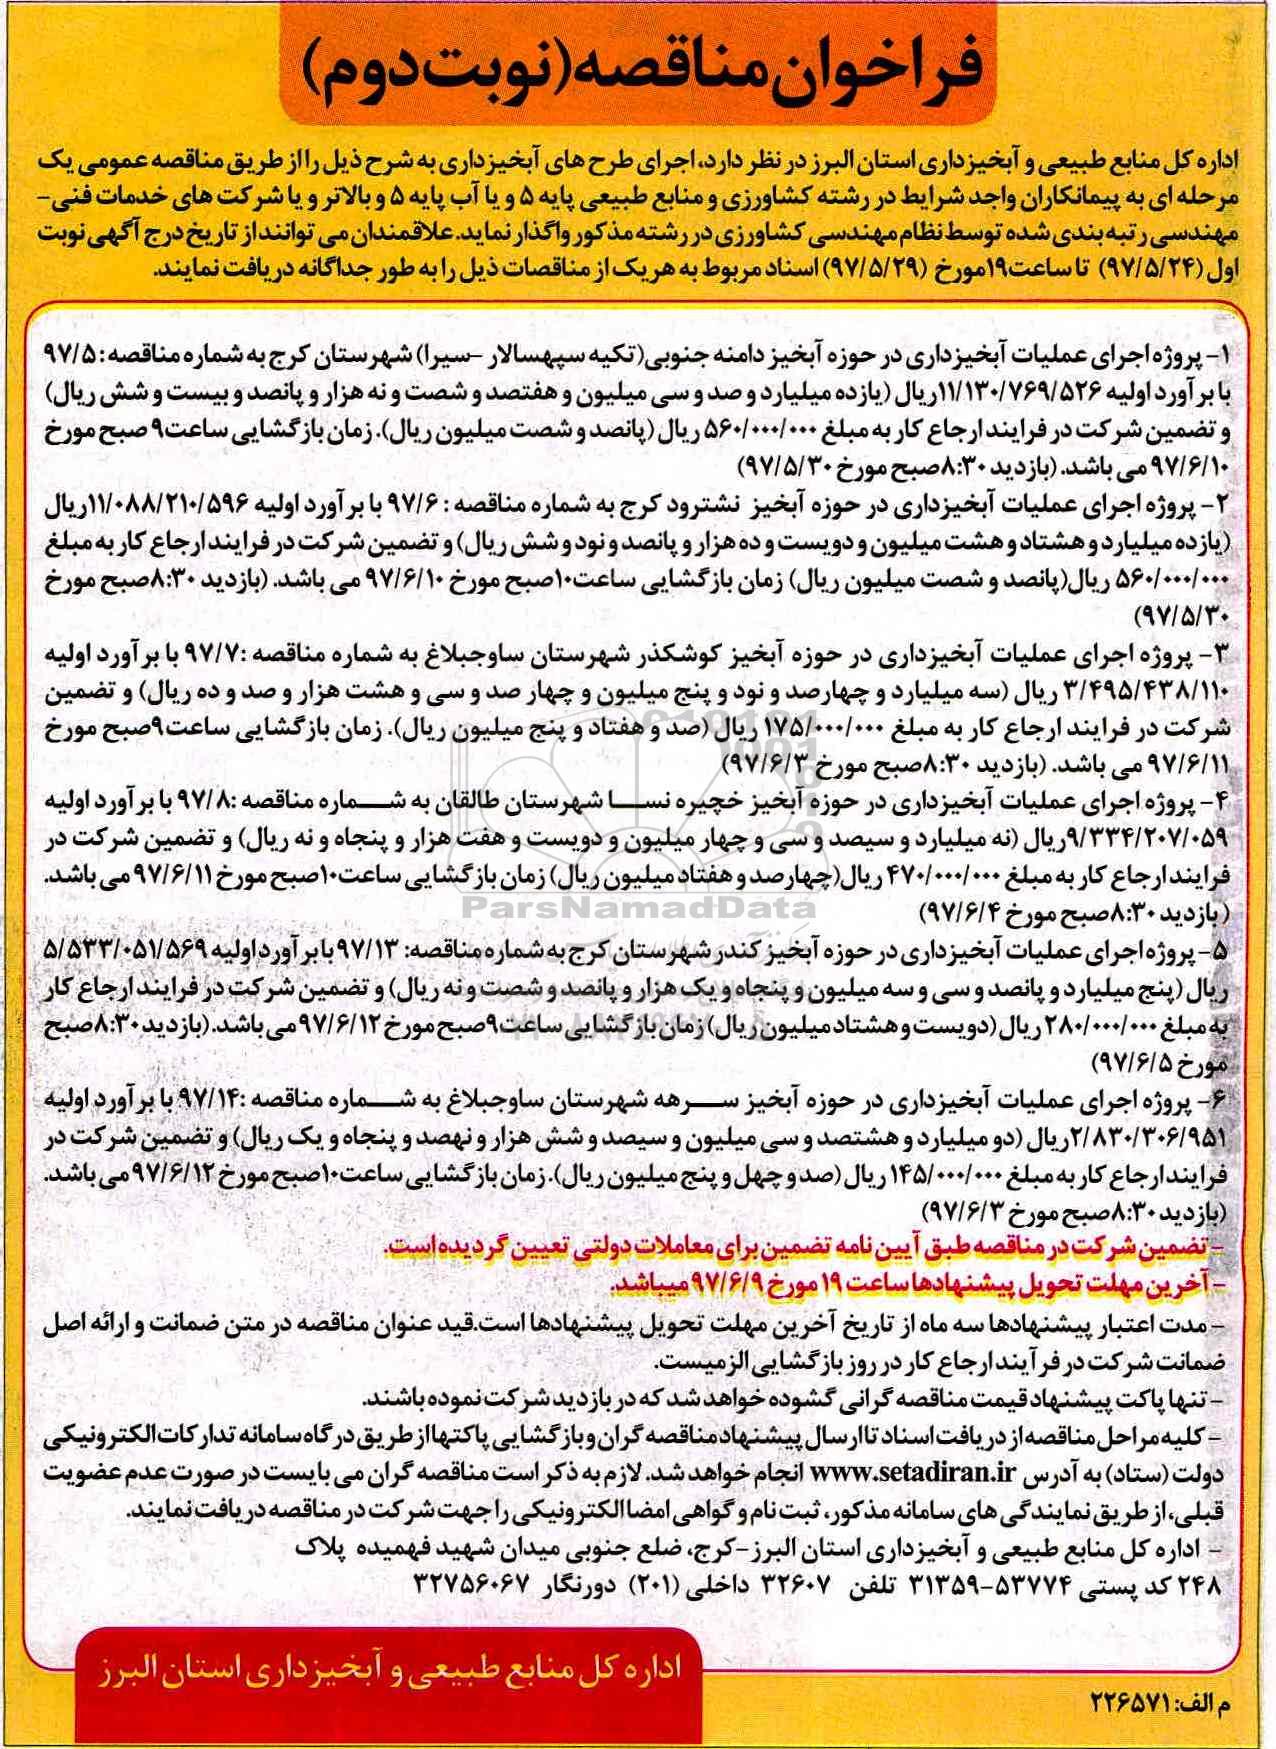 فراخوان مناقصه(نوبت دوم)
اداره کل منابع طبیعی و آبخیزداری استان البرز در نظر دارد، اجرای طرح های آبخیزداری به شرح ذیل را از طریق مناقصه عمومی یک
مرحله ای به پیمانکاران واجد شرایط در رشته کشاورزی و منابع طبیعی پایه ۵ و یا آب پایه ۵ و بالاتر و یا شرکت های خدمات فنی-
مهندسی رتبه بندی شده توسط نظام مهندسی کشاورزی در رشته مذکور واگذار نماید. علاقمندان می توانند از تاریخ درج آگهی نوبت
اول (۹۷/۵/۲۴) تا ساعت ۱۹مورخ (۹۷/۵/۲۹) اسناد مربوط به هر یک از مناقصات ذیل را به طور جداگانه دریافت نمایند.
۱- پروژه اجرای عملیات آبخیزداری در حوزه آبخیز دامنه جنوبی(تکیه سپهسالار -سیرا) شهرستان کرج به شماره مناقصه: ۹۷/۵
با برآورد اولیه ۱۱/۱۳۰/۷۶۹/۵۲۶ریال (یازده میلیارد و صد و سی میلیون و هفتصد و شصت و نه هزار و پانصد و بیست و شش ریال)
و تضمین شرکت در فرایند ارجاع کار به مبلغ ۵۶۰/۰۰۰/۰۰۰ ریال (پانصد و شصت میلیون ریال). زمان بازگشایی ساعت ۹ صبح مورخ
۹۷/۶/۱۰ می باشد. (بازدید ۸:۳۰صبح مورخ ۹۷/۵/۳۰)
۲- پروژه اجرای عملیات آبخیزداری در حوزه آبخیز نشترود کرج به شماره مناقصه : ۹۷/۶ با برآورد اولیه ۱۱/۰۸۸/۲۱۰/۵۹۶ریال
(یازده میلیارد و هشتاد و هشت میلیون و دویست و ده هزار و پانصد و نود و شش ریال) و تضمین شرکت در فرایند ارجاع کار به مبلغ
۵۶۰/۰۰۰/۰۰۰ ریال(پانصد و شصت میلیون ریال) زمان بازگشایی ساعت۱۰صبح مورخ ۹۷/۶/۱۰ می باشد. (بازدید ۸:۳۰صبح مورخ
۹۷/۵/۳۰)
۳- پروژه اجرای عملیات آبخیزداری در حوزه آبخیز کوشکذر شهرستان ساوجبلاغ به شماره مناقصه :۹۷/۷ با برآورد اولیه
۳/۴۹۵/۴۳۸/۱۱۰ ریال (سه میلیارد و چهارصد و نود و پنج میلیون و چهار صد و سی و هشت هزار و صد و ده ریال) و تضمین
شرکت در فرایند ارجاع کار به مبلغ ۱۷۵/۰۰۰/۰۰۰ ریال (صد و هفتاد و پنج میلیون ریال). زمان بازگشایی ساعت۹صبح مورخ
۹۷/۶/۱۱ می باشد. (بازدید ۸:۳۰صبح مورخ ۹۷/۶/۳)
۴- پروژه اجرای عملیات آبخیزداری در حوزه آبخیز خچیره نسا شهرستان طالقان به شماره مناقصه :۹۷/۸ با برآورد اولیه
۹/۳۳۴/۲۰۷/۰۵۹ریال (نه میلیارد و سیصد و سی و چهار میلیون و دویست و هفت هزار و پنجاه و نه ریال) و تضمین شرکت در
فرایند ارجاع کار به مبلغ ۴۷۰/۰۰۰/۰۰۰ ریال(چهارصد و هفتاد میلیون ریال) زمان بازگشایی ساعت۱۰صبح مورخ ۹۷/۶/۱۱ می باشد.
(بازدید ۸:۳۰صبح مورخ ۹۷/۶/۴)
ParsNamadData
۵- پروژه اجرای عملیات آبخیزداری در حوزه آبخیز کندر شهرستان کرج به شماره مناقصه: ۹۷/۱۳ با برآورد اولیه ۵/۵۳۳/۰۵۱/۵۶۹
ریال (پنج میلیارد و پانصد و سی و سه میلیون و پنجاه و یک هزار و پانصد و شصت و نه ریال) و تضمین شرکت در فرایند ارجاع کار
به مبلغ ۲۸۰/۰۰۰/۰۰۰ ریال (دویست و هشتاد میلیون ریال) زمان بازگشایی ساعت۹صبح مورخ ۹۷/۶/۱۲ می باشد. (بازدید ۸:۳۰صبح
مورخ ۹۷/۶/۵)
۶- پروژه اجرای عملیات آبخیزداری در حوزه آبخیز سرهه شهرستان ساوجبلاغ به شماره مناقصه :۹۷/۱۴ با برآورد اولیه
۲/۸۳۰/۳۰۶/۹۵۱ریال (دو میلیارد و هشتصد و سی میلیون و سیصد و شش هزار و نهصد و پنجاه و یک ریال) و تضمین شرکت در
فرایند ارجاع کار به مبلغ ۱۴۵/۰۰۰/۰۰۰ ریال (صد و چهل و پنج میلیون ریال). زمان بازگشایی ساعت۱۰صبح مورخ ۹۷/۶/۱۲ می باشد.
(بازدید ۸:۳۰صبح مورخ ۹۷/۶/۳)
- تضمین شرکت در مناقصه طبق آیین نامه تضمین برای معاملات دولتی تعیین گردیده است.
- آخرین مهلت تحویل پیشنهادها ساعت ۱۹ مورخ ۹۷/۶/۹ میباشد.
- مدت اعتبار پیشنهادها سه ماه از تاریخ آخرین مهلت تحویل پیشنهادها است.قید عنوان مناقصه در متن ضمانت و ارائه اصل
ضمانت شرکت در فرآیند ارجاع کار در روز بازگشایی الزمیست.
- تنها پاکت پیشنهاد قیمت مناقصه گرانی گشوده خواهد شد که در بازدید شرکت نموده باشند.
- کلیه مراحل مناقصه از دریافت اسناد تا ارسال پیشنهاد مناقصه گران و بازگشایی پاکتها از طریق درگاه سامانه تدارکات الکترونیکی
دولت (ستاد) به آدرس www.setadiran.ir انجام خواهد شد. لازم به ذکر است مناقصه گران می بایست در صورت عدم عضویت
قبلی، از طریق نمایندگی های سامانه مذکور، ثبت نام و گواهی امضا الکترونیکی را جهت شرکت در مناقصه دریافت نمایند.
- اداره کل منابع طبیعی و آبخیزداری استان البرز-کرج، ضلع جنوبی میدان شهید فهمیده پلاک
۲۴۸ کد پستی ۵۳۷۷۴-۳۱۳۵۹ تلفن ۳۲۶۰۷ داخلی (۲۰۱) دورنگار ۳۲۷۵۶۰۶۷
اداره کل منابع طبیعی و آبخیزداری استان البرز
م الف: ۲۲۶۵۷۱